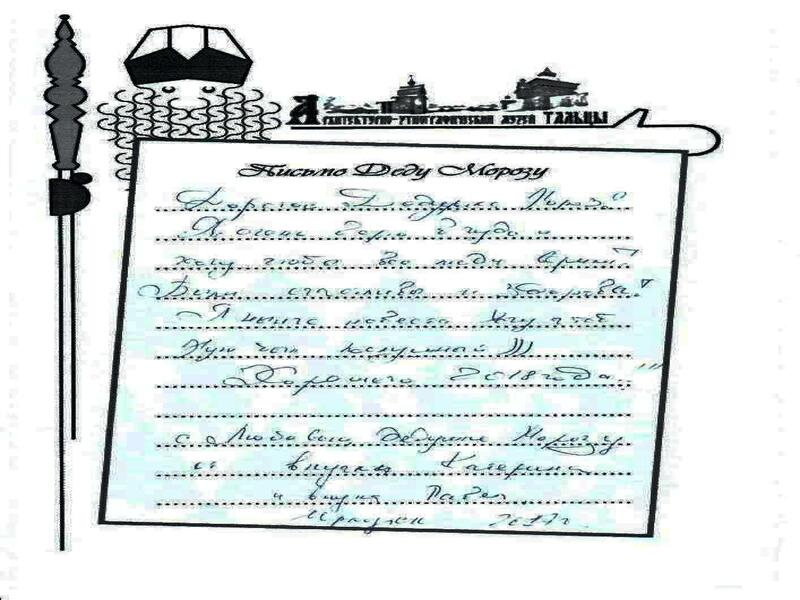 Архитектурно-этнографический музей ТАЛЬЦЫ
Письмо Деду Морозу
Дорогой Дедушка Мороз!
Я очень верю в чудо и
хочу чтобы все люди
Были счастливы и здоровы!
Я хочу чтоб
)))
Хорошего 2018 года!!!
с Любовью Дедушке Морозу
от внучки Катерины
и внука Павел
2017г.